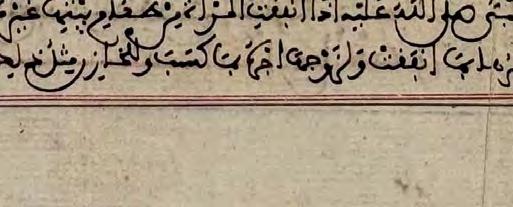 النبي صلى الله عليه اذا انفقت المراة من طعام بيتها غير
بما انفقت ولزوجها اجره بما كسب وللخازن مثل ذلك